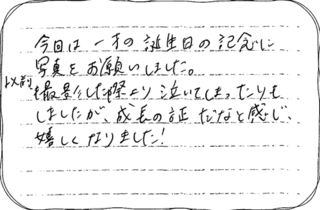 今回は一才の誕生日の記念に
写真をお願いしました。
以前撮影した際より泣いてしまったりも
しましたが、成長の証だなと感じ、
嬉しくなりました!